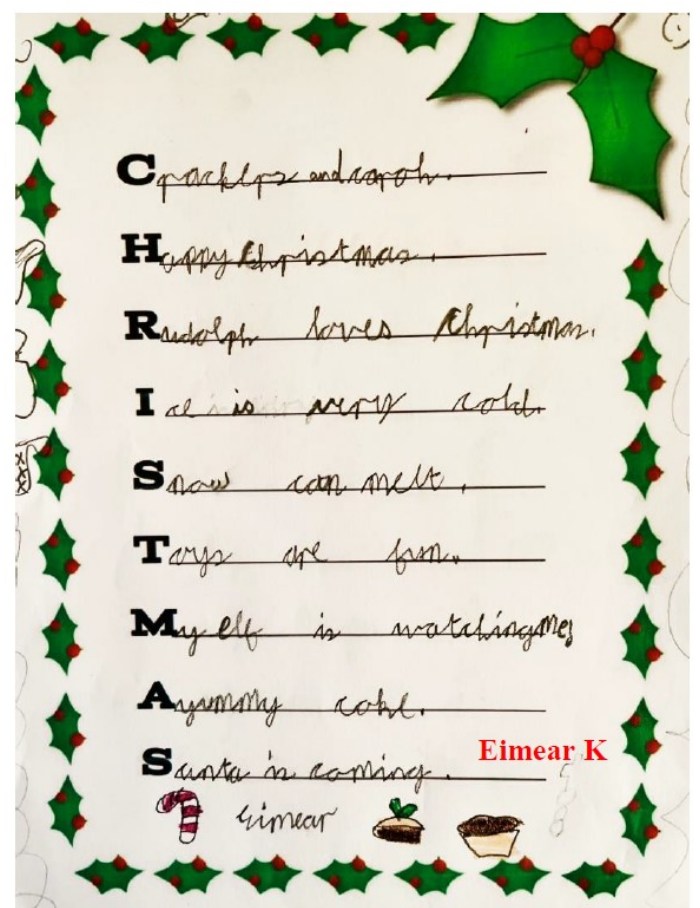 Crackers and carols.
Happy Christmas.
Rudolph loves Christmas.
Ice is very cold.
Snow can melt.
Toys are fun.
My elf is watching me,
A yummy cake.
Santa is coming.
Eimear K
Eimear